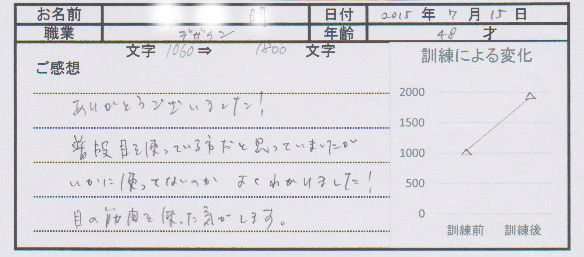 お名前
日付 2015 年 7 月 15 日
職業 デザイン
年齢 48 才
文字 1060 ⇒ 1800 文字
ご感想
ありがとうございました!
普段目を使っている方だと思っていましたが
いかに使ってないのか よくわかりました!
目の筋肉を使った気がします。
訓練による変化
2000
1500
1000
500
0
訓練前 訓練後